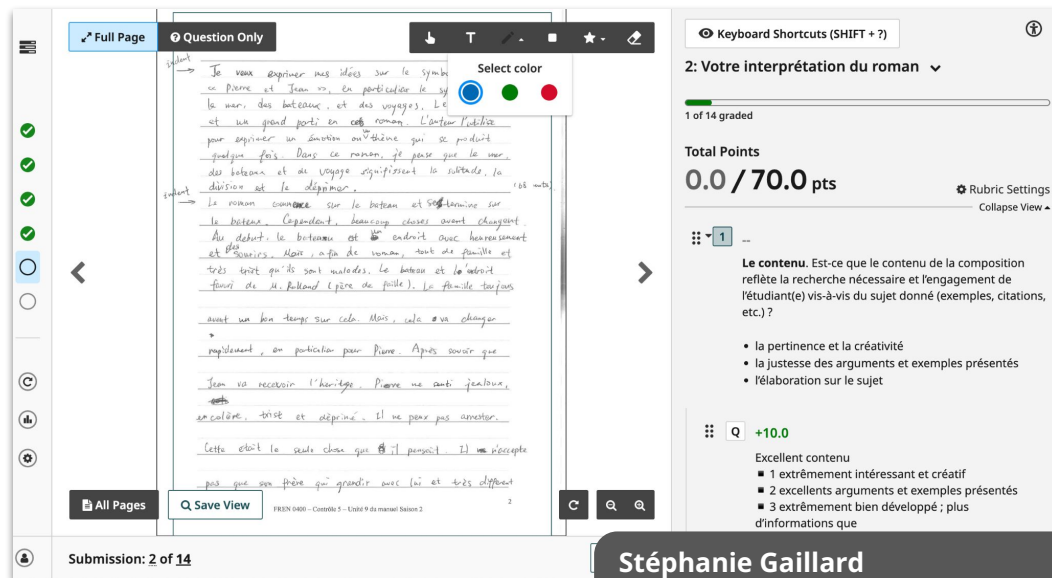 Full Page
Question Only
T
Select color
indent
Je veux exprimer mes idées sur le symbo
ce Pierre et Jean, en particulier le sy
la mer, des bateaux, et des voyages. Le
et un grand parti en ce roman. L'auteur l'utilise
pour exprimer un émotion ou un thème qui se produit
quelque fois. Dans ce roman, je pense que la mer,
des bateaux et de voyage signifissent la solitude, la
division et le déprimer.
indent
Le roman commence sur le bateau et se termine sur
le bateau. Cependant, beaucoup choses avant changent.
Au debut, le bateau et un endroit avec heureusement
et des souris. Mais, a fin de roman, tout de famille et
très trist qu'ils sont malades. Le bateau et le endroit
favori de M. Rolland (père de faille). La famille toujours
avant un bon temps sur cela. Mais, cela va changer
rapidement, en particulier pour Pierre. Après savoir que
Jean va recevoir l'heritge. Pierre me jealoux,
en colère, trist et déprimé. Il ne peux pas arrester.
Cette était le seule chose que il pensait. Il n'accepte
pas que son frère qui grandir avec lui et très different
2
FREN 0400 – Contrôle 5 – Unité 9 du manuel Saison 2
All Pages
Save View
Submission: 2 of 14
Keyboard Shortcuts (SHIFT + ?)
2: Votre interprétation du roman
1 of 14 graded
Total Points
0.0 / 70.0 pts
Rubric Settings
Collapse View
1 --
Le contenu. Est-ce que le contenu de la composition
reflète la recherche nécessaire et l'engagement de
l'étudiant(e) vis-à-vis du sujet donné (exemples, citations,
etc.) ?
• la pertinence et la créativité
• la justesse des arguments et exemples présentés
• l'élaboration sur le sujet
Q +10.0
Excellent contenu
■ 1 extrêmement intéressant et créatif
■ 2 excellents arguments et exemples présentés
■ 3 extrêmement bien développé ; plus
d'informations que
Stéphanie Gaillard